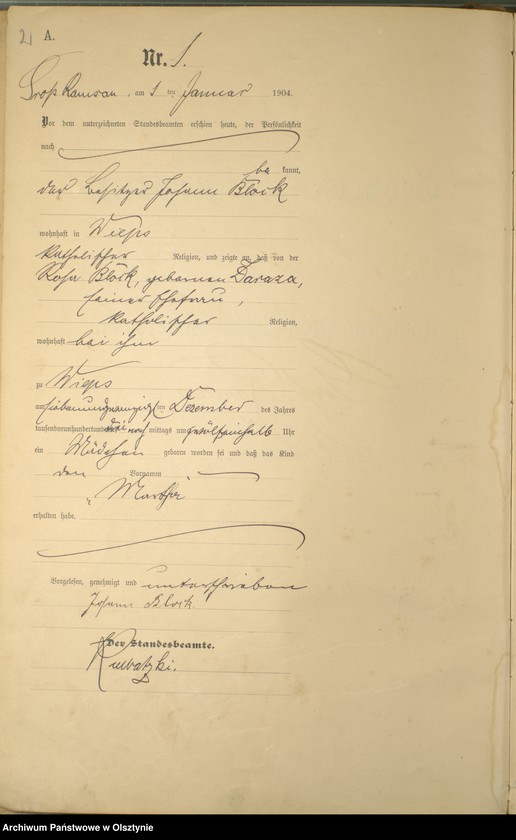 2) A.
Nr. 1.
Groß Ramsau, am 1 ten Januar 1904.
Vor dem unterzeichneten Standesbeamten erschien heute, der Persönlichkeit
nach
be kannt,
der Besitzer Johann Block
wohnhaft in Wieps
katholischer Religion, und zeigte an, daß von der
Rosa Block, geborenen Daraza,
seiner Ehefrau,
katholischer Religion,
wohnhaft bei ihm
zu Wieps
am siebenundzwanzigsten Dezember des Jahres
tausendneunhundert drei nach mittags um zwölfeinhalb Uhr
ein Mädchen geboren worden sei und daß das Kind
den Vornamen
„Martha"
erhalten habe.
Vorgelesen, genehmigt und unterschrieben
Johann Block
Der Standesbeamte.
Archiwum Państwowe w Olsztynie